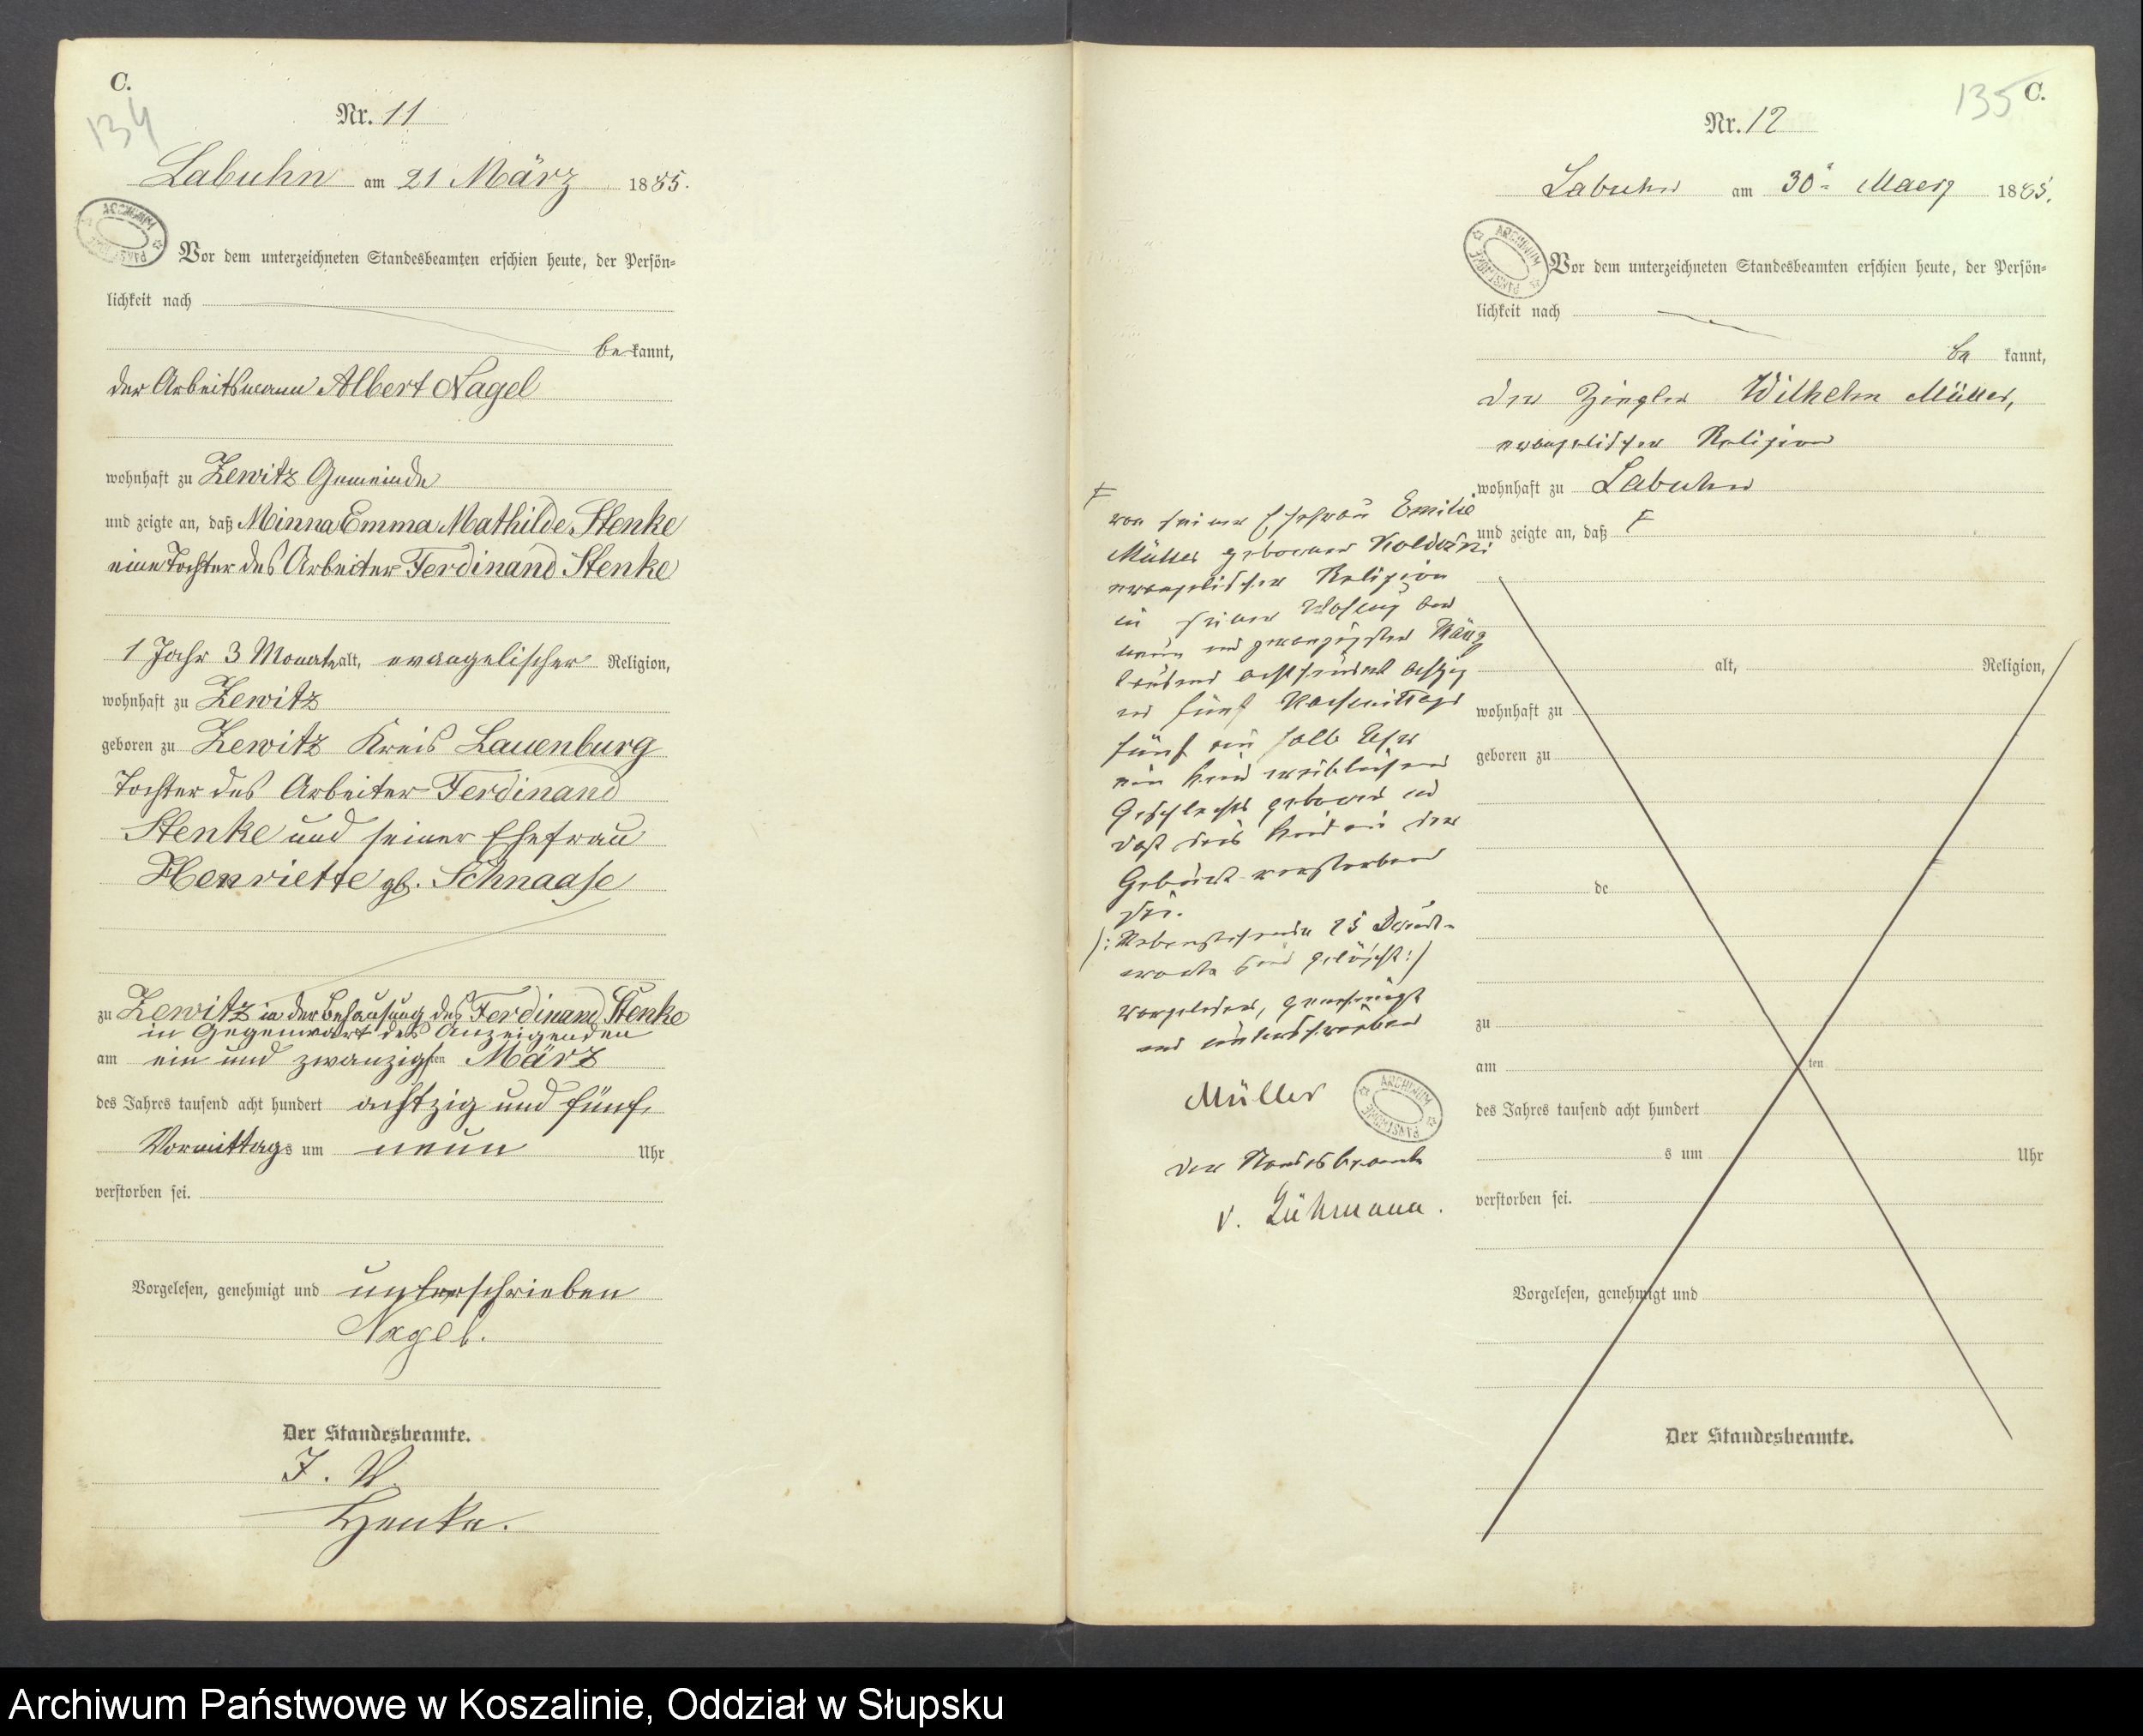 C.
134
Nr. 11
Labuhn am 21 März 1885.
ARCHIWUM PAŃSTWOWE
Vor dem unterzeichneten Standesbeamten erschien heute, der Persön-
lichkeit nach
be kannt,
der Arbeitsmann Albert Nagel
wohnhaft zu Zewitz Gemeinde
und zeigte an, daß Minna Emma Mathilde Stenke
eine Tochter des Arbeiter Ferdinand Stenke
1 Jahr 3 Monate alt, evangelischer Religion,
wohnhaft zu Zewitz
geboren zu Zewitz Kreis Lauenburg
Tochter des Arbeiter Ferdinand
Stenke und seiner Ehefrau
Henriette gb. Schnaase
zu Zewitz in der Behausung des Ferdinand Stenke
in Gegenwart des Anzeigenden
am ein und zwanzigsten März
des Jahres tausend acht hundert achtzig und fünf,
Vormittags um neun Uhr
verstorben sei.
Vorgelesen, genehmigt und unterschrieben
Nagel.
Der Standesbeamte.
I. V.
Henke.
135 C.
Nr. 12
Labuhn am 30ten Maerz 1885.
ARCHIWUM PAŃSTWOWE
Vor dem unterzeichneten Standesbeamten erschien heute, der Persön-
lichkeit nach
be kannt,
der Ziegler Wilhelm Müller,
evangelischer Religion
wohnhaft zu Labuhn
und zeigte an, daß F
F
von seiner Ehefrau Emilie
Müller geborenen
evangelischer Religion
in seiner Wohnung am
neun und zwanzigsten März
tausend achthundert achtzig
und fünf Nachmittags
fünf ein halb Uhr
ein Kind weiblichen
Geschlechts geboren und
daß dies Kind in der
Geburt verstorben
sei.
/: Nebenstehende 25 Druck-
worte sind gelöscht :/
Vorgelesen, genehmigt
und unterschrieben
Müller
ARCHIWUM PAŃSTWOWE
der Standesbeamte
v. Zühmann.
alt, Religion,
wohnhaft zu
geboren zu
de
zu
am ten
des Jahres tausend acht hundert
s um Uhr
verstorben sei.
Vorgelesen, genehmigt und
Der Standesbeamte.
Archiwum Państwowe w Koszalinie, Oddział w Słupsku